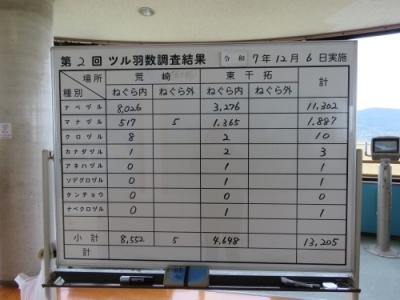 第2回 ツル羽数調査結果 令和 7年12月6日実施
場所 荒崎 東干拓 計
種別 ねぐら内 ねぐら外 ねぐら内 ねぐら外
ナベヅル 8,026 3,276 11,302
マナヅル 517 5 1,365 1,887
クロヅル 8 2 10
カナダヅル 1 2 3
アネハヅル 0 1 1
ソデグロヅル 0 1 1
タンチョウ 0 0 0
ナベクロヅル 0 1 1
小計 8,552 5 4,648 13,205
計